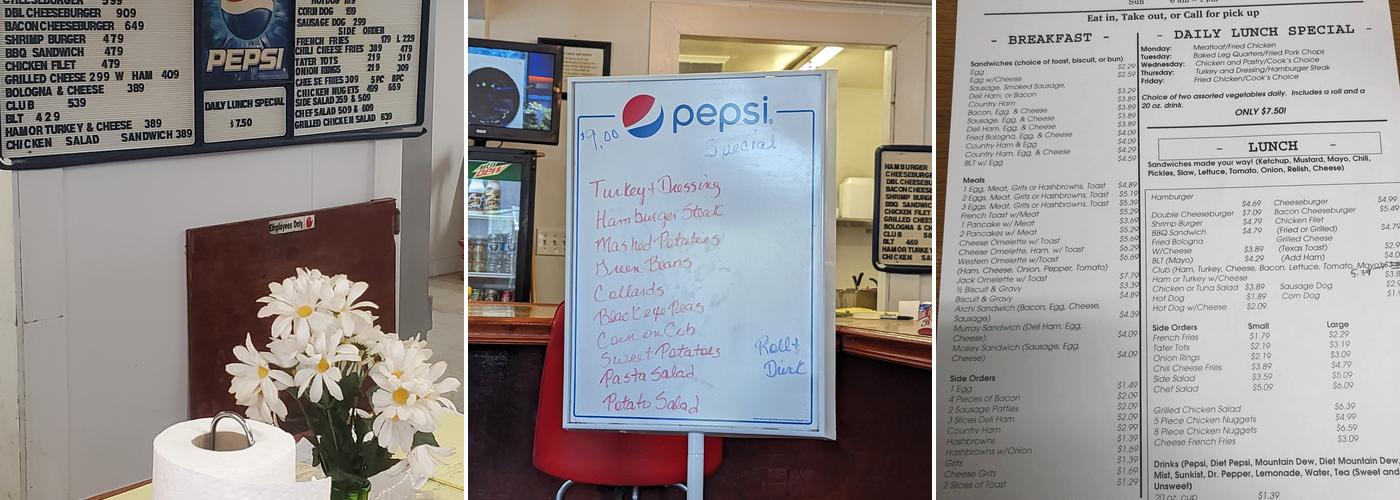 CHEESEBURGER 599
DBL CHEESEBURGER 909
BACON CHEESEBURGER 649
SHRIMP BURGER 479
BBQ SANDWICH 479
CHICKEN FILET 479
GRILLED CHEESE 299 W HAM 409
BOLOGNA & CHEESE 389
CLUB 539
BLT 429
HAM OR TURKEY & CHEESE 389
CHICKEN SALAD SANDWICH 389
PEPSI
DAILY LUNCH SPECIAL
$7.50
HOT DOG 189
CORN DOG 199
SAUSAGE DOG 299
SIDE ORDER
FRENCH FRIES 179 L 229
CHILI CHEESE FRIES 389 479
TATER TOTS 219 319
ONION RINGS 219 309
CHEESE FRIES 309 5PC 8PC
CHICKEN NUGETS 499 659
SIDE SALAD 359 & 509
CHEF SALAD 509 & 609
GRILLED CHICKEN SALAD 639
Employees Only
pepsi
$9.00
Special
Turkey + Dressing
Hamburger Steak
Mashed Potatoes
Green Beans
Collards
Blackeye Peas
Corn on Cob
Sweet Potatoes
Pasta Salad
Potato Salad
Roll +
Drink
HAMBURGER
CHEESEBURGER
DBL CHEESEB
BACON CHEES
SHRIMP BURG
BBQ SANDWIC
CHICKEN FILE
GRILLED CHE
BOLOGNA & CH
CLUB
BLT 469
HAM OR TURKEY
CHICKEN SALA
Eat in, Take out, or Call for pick up
- BREAKFAST -
Sandwiches (choice of toast, biscuit, or bun)
Egg $2.29
Egg w/Cheese $2.59
Sausage, Smoked Sausage,
Deli Ham, or Bacon $3.29
Country Ham $3.89
Bacon, Egg, & Cheese $3.89
Sausage, Egg, & Cheese $3.89
Deli Ham, Egg, & Cheese $3.89
Fried Bologna, Egg, & Cheese $4.09
Country Ham & Egg $4.09
Country Ham, Egg, & Cheese $4.29
BLT w/ Egg $4.59
Meals
1 Egg, Meat, Grits or Hashbrowns, Toast $4.89
2 Eggs, Meat, Grits or Hashbrowns, Toast $5.19
3 Eggs, Meat, Grits or Hashbrowns, Toast $5.39
French Toast w/Meat $5.29
1 Pancake w/ Meat $3.69
2 Pancakes w/ Meat $5.29
Cheese Omelette w/ Toast $5.69
Cheese Omelette, Ham, w/ Toast $6.29
Western Omelette w/Toast $6.69
(Ham, Cheese, Onion, Pepper, Tomato)
Jack Omelette w/ Toast $7.79
½ Biscuit & Gravy $3.39
Biscuit & Gravy $4.89
Archi Sandwich (Bacon, Egg, Cheese,
Sausage) $4.39
Murray Sandwich (Deli Ham, Egg,
Cheese) $4.09
Mosley Sandwich (Sausage, Egg,
Cheese) $4.09
Side Orders
1 Egg $1.49
4 Pieces of Bacon $2.09
2 Sausage Patties $2.09
3 Slices Deli Ham $2.09
Country Ham $2.99
Hashbrowns $1.39
Hashbrowns w/Onion $1.69
Grits $1.39
Cheese Grits $1.69
2 Slices of Toast $1.29
- DAILY LUNCH SPECIAL -
Monday: Meatloaf/Fried Chicken
Tuesday: Baked Leg Quarters/Fried Pork Chops
Wednesday: Chicken and Pastry/Cook's Choice
Thursday: Turkey and Dressing/Hamburger Steak
Friday: Fried Chicken/Cook's Choice
Choice of two assorted vegetables daily. Includes a roll and a
20 oz. drink.
ONLY $7.50!
- LUNCH -
Sandwiches made your way! (Ketchup, Mustard, Mayo, Chili,
Pickles, Slaw, Lettuce, Tomato, Onion, Relish, Cheese)
Hamburger $4.69 Cheeseburger $4.99
Double Cheeseburger $7.09 Bacon Cheeseburger $5.49
Shrimp Burger $4.79 Chicken Filet
BBQ Sandwich $4.79 (Fried or Grilled) $4.79
Fried Bologna Grilled Cheese
W/Cheese $3.89 (Texas Toast)
BLT (Mayo) $4.29 (Add Ham)
Club (Ham, Turkey, Cheese, Bacon, Lettuce, Tomato, Mayo)
5.39
Ham or Turkey w/Cheese
Chicken or Tuna Salad $3.89 Sausage Dog
Hot Dog $1.89 Corn Dog
Hot Dog w/Cheese $2.09
Side Orders Small Large
French Fries $1.79 $2.29
Tater Tots $2.19 $3.19
Onion Rings $2.19 $3.09
Chili Cheese Fries $3.89 $4.79
Side Salad $3.59 $5.09
Chef Salad $5.09 $6.09
Grilled Chicken Salad $6.39
5 Piece Chicken Nuggets $4.99
8 Piece Chicken Nuggets $6.59
Cheese French Fries $3.09
Drinks (Pepsi, Diet Pepsi, Mountain Dew, Diet Mountain Dew,
Mist, Sunkist, Dr. Pepper, Lemonade, Water, Tea (Sweet and
Unsweet)
20 oz. cup $1.39